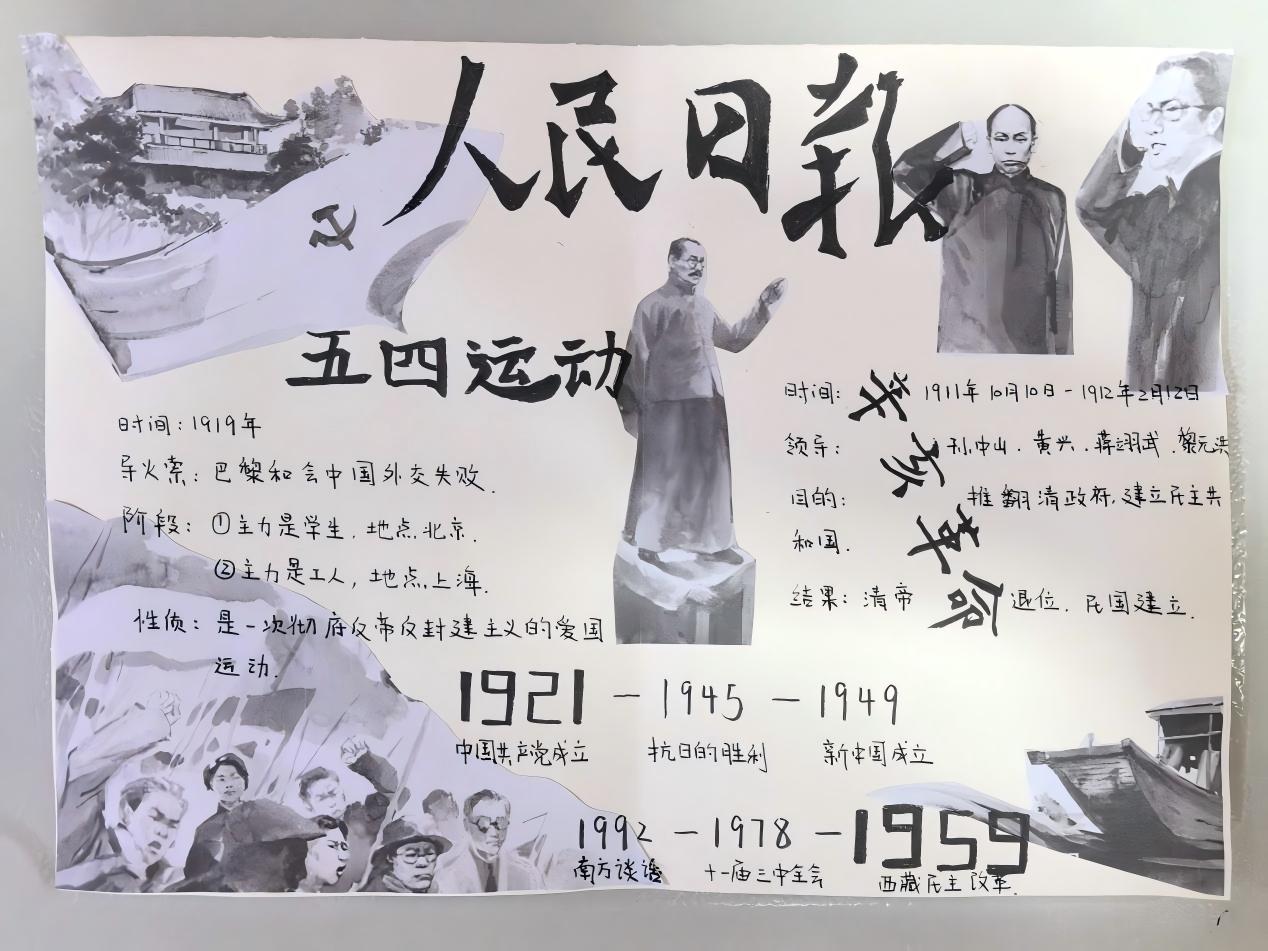 人民日報
五四运动
时间：1919年
导火索：巴黎和会中国外交失败.
阶段：①主力是学生，地点北京.
②主力是工人，地点上海.
性质：是一次彻底反帝反封建主义的爱国
运动.
辛亥革命
时间：1911年10月10日-1912年2月12日
领导：孙中山.黄兴.蒋翊武.黎元洪
目的：推翻清政府.建立民主共
和国.
结果：清帝退位.民国建立.
1921 — 1945 — 1949
中国共产党成立 抗日的胜利 新中国成立
1992 — 1978 — 1959
南方谈话 十一届三中全会 西藏民主改革.